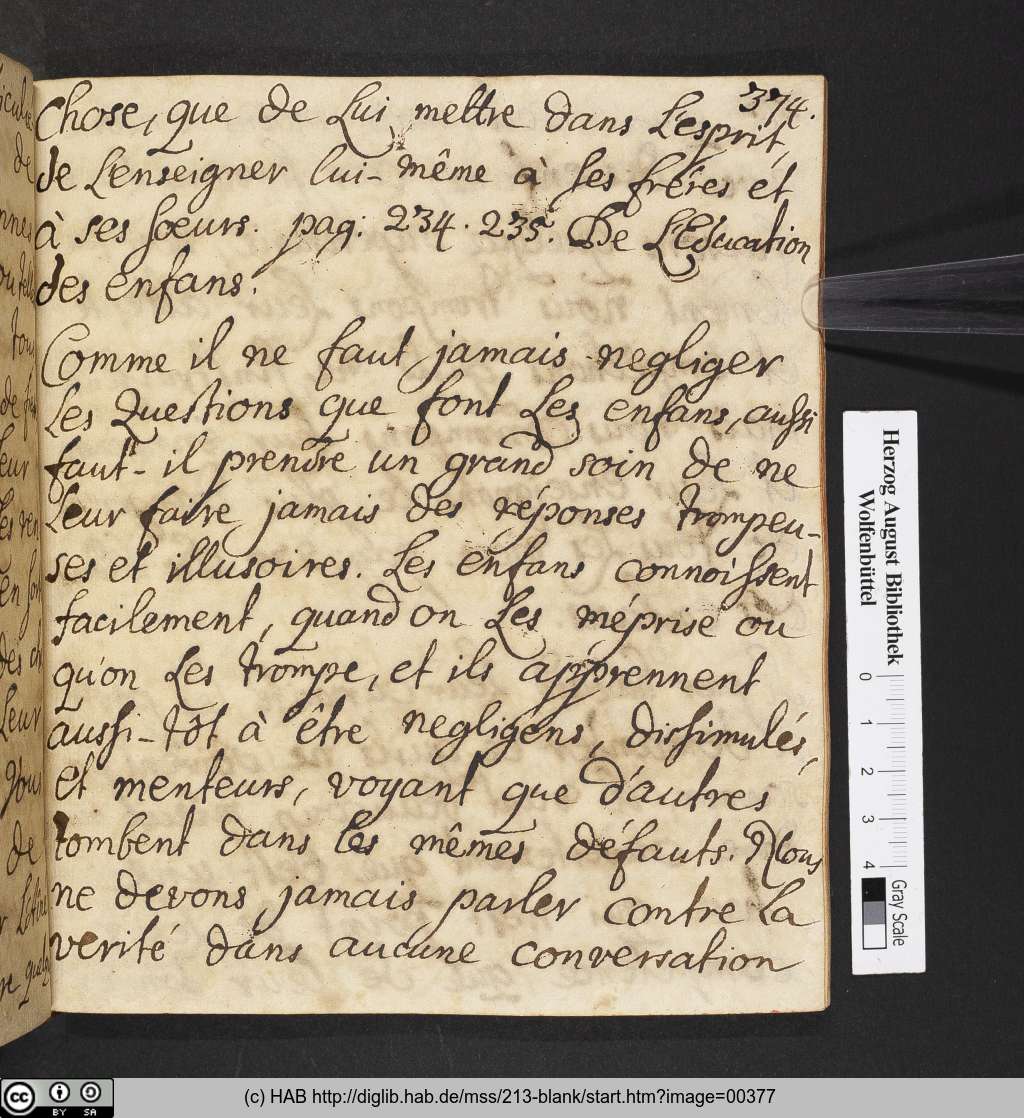 374.
Chose, que de Lui mettre dans L'esprit,
de L'enseigner lui-même à ses fréres et
à ses sœurs. pag: 234. 235. De L'Education
des enfans.
Comme il ne faut jamais negliger
Les Questions que font Les enfans, aussi
faut-il prendre un grand soin de ne
Leur faire jamais des réponses trompeu-
ses et illusoires. Les enfans connoissent
facilement, quand on Les méprise ou
qu'on Les trompe, et ils apprennent
aussi-tôt à être negligens, dissimulés,
et menteurs, voyant que d'autres
tombent dans les mêmes défauts. Nous
ne devons jamais parler contre La
verité dans aucune conversation
Herzog August Bibliothek
Wolfenbüttel
0 1 2 3 4
Gray Scale
cc BY SA
(c) HAB http://diglib.hab.de/mss/213-blank/start.htm?image=00377